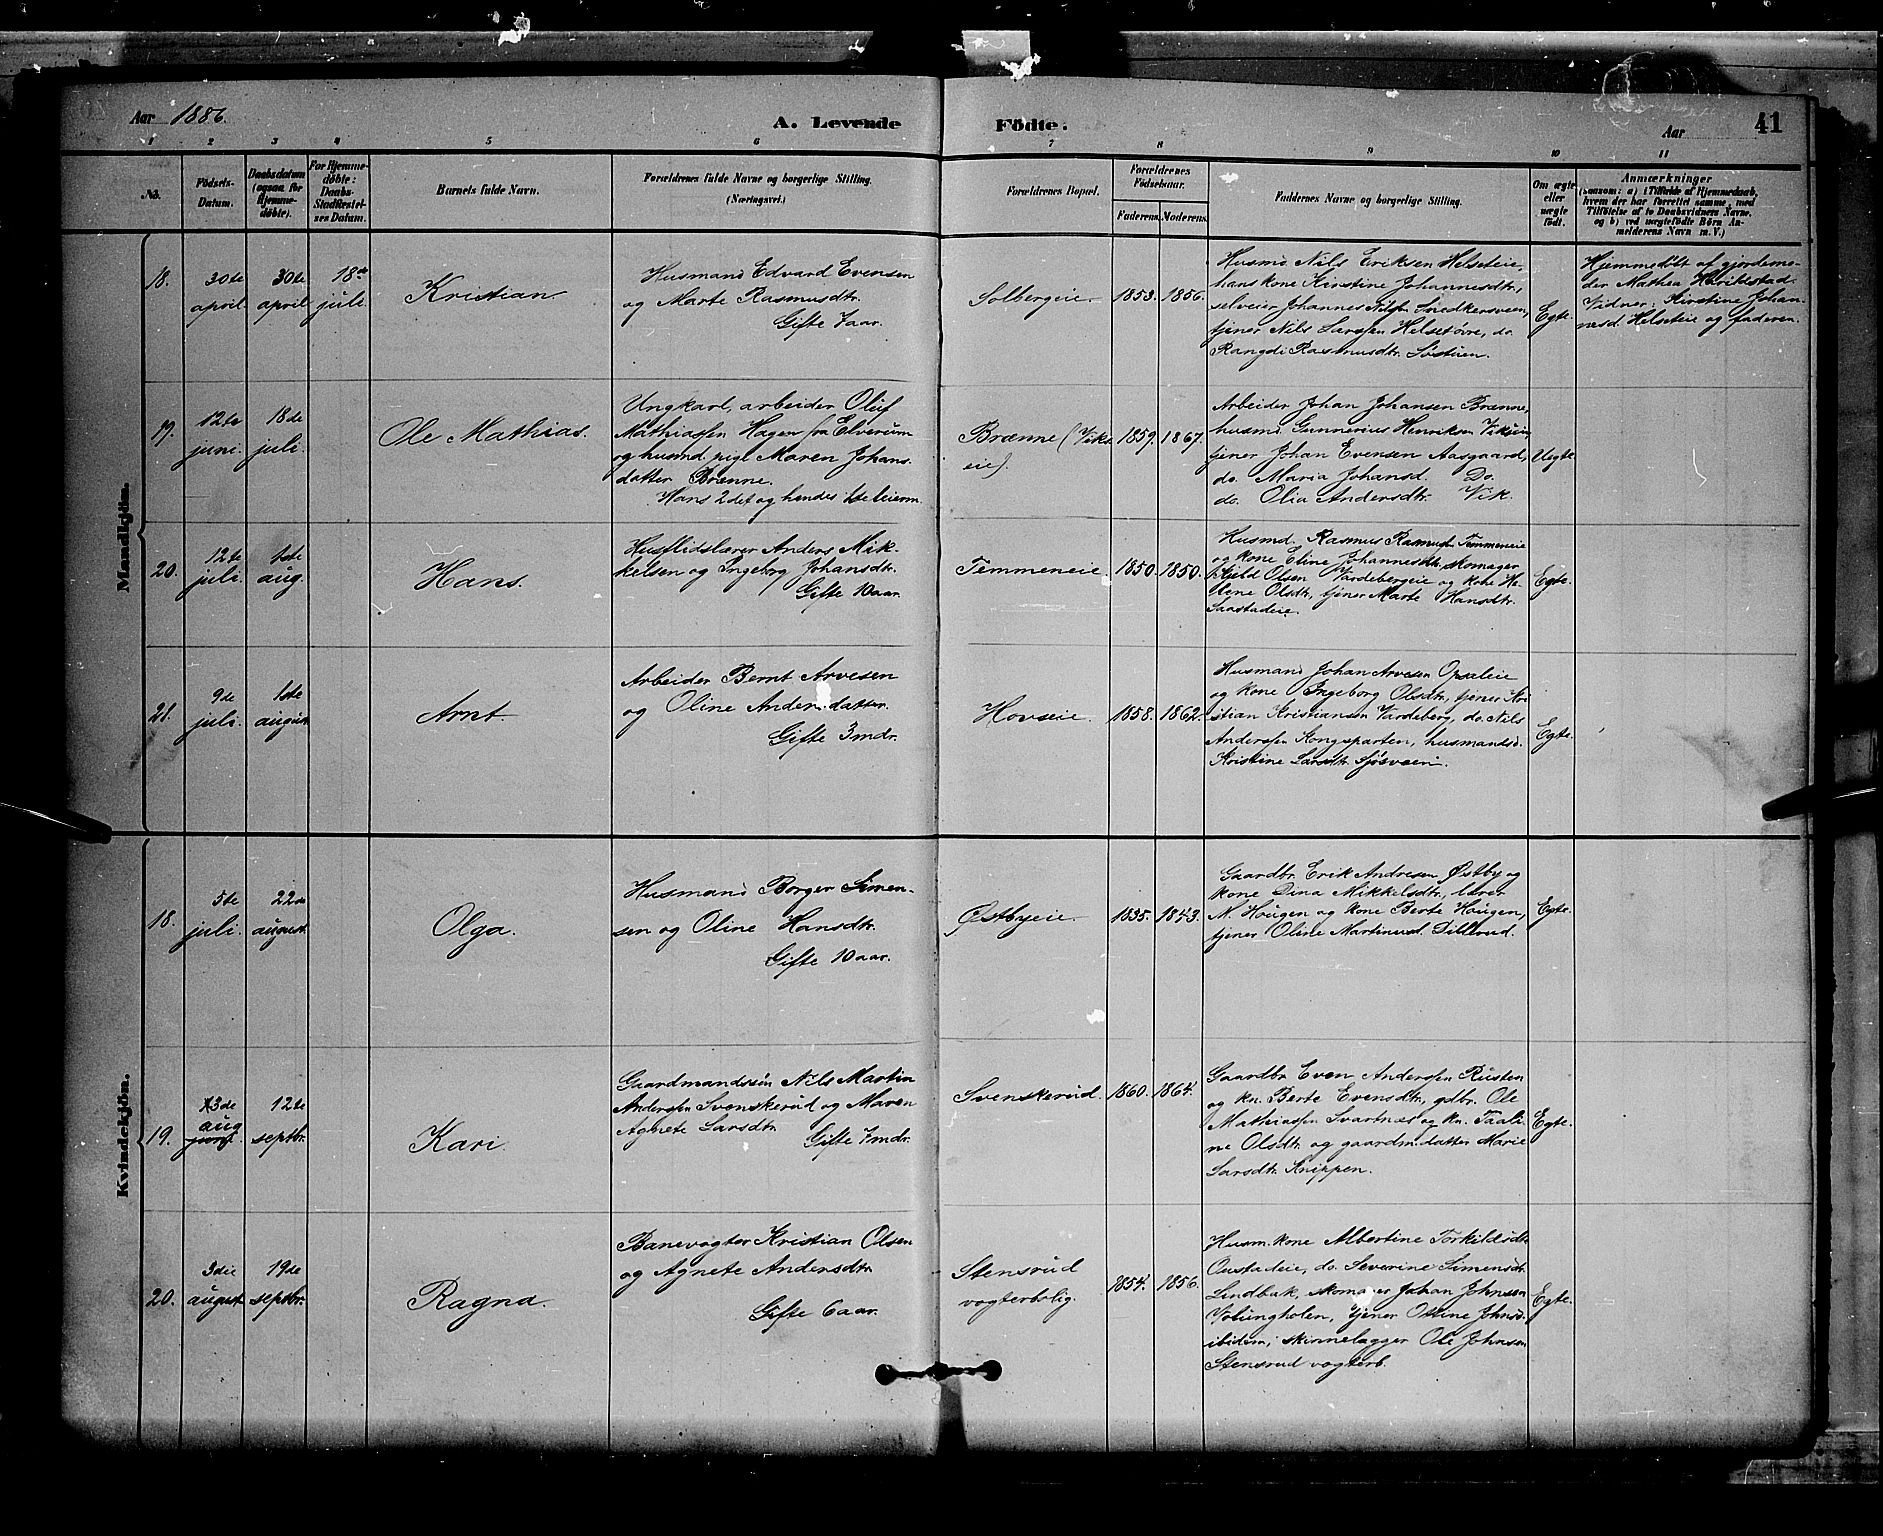 Aar 1886.
A. Levende Födte.
Aar
41
1 2 3 4 5 6 7 8 9 10 11
No.
Födsels-
Datum.
Daabsdatum
(ogsaa for
Hjemme-
döbte).
For Hjemme-
döbte:
Daabs-
Stadfæstel-
ses Datum.
Barnets fulde Navn.
Forældrenes fulde Navne og borgerlige Stilling.
(Næringsvei.)
Forældrenes Bopæl.
Forældrenes
Födselsaar.
Faderens. Moderens.
Faddernes Navne og borgerlige Stilling.
Om ægte
eller
uægte
födt.
Anmærkninger
(saasom: a) i Tilfælde af Hjemmedaab,
hvem der har forrettet samme, med
Tilföielse af to Daabsvidners Navne,
og b) ved uægtefödte Börn An-
melderens Navn m. V.)
Mandkjön.
18.
30te
april.
30te
april
18de
juli
Kristian
Husmand Edvard Evensen
og Marte Rasmusdtr.
Gifte 7 aar.
Solbergeie.
1853.
1856.
Husmd Nils Eriksen Helseteie,
hans kone Kirstine Johannesdtr.,
selveier Johannes Nilsen Snedkersveen,
tjener Nils Larssen Helsetövre, do.
Rangdi Rasmusdtr. Söstuen.
Egte.
Hjemmedöbt af gjordemo-
der Mathea
Vidner: Kirstine Johan-
nesd. Helseteie og faderen.
19.
12te
juni.
18de
juli.
Ole Mathias.
Ungkarl, arbeider Oluf
Mathiassen Hagen fra Elverum
og husmd. pige Maren Johans-
datter Brænne.
Hans 2det og hendes 1ste leierm.
Brænne (Viks-
eie).
1859.
1867.
Arbeider Johan Johansen Brænne,
husmd Gunnerius Henriksen Vikseie,
tjener Johan Evensen Aasgaard,
do. Maria Johansd. Do.
do. Olia Andersdtr. Vik.
Uegte
20.
12te
juli.
1ste
aug.
Hans.
Husflidslærer Anders Mik-
kelsen og Ingeborg Johansdtr.
Gifte 10 aar.
Temmeneie.
1850.
1850.
Husmd. Rasmus Rasmussen Temmeneie
og kone Eline Johannesdtr. skomager
Kjeld Olsen Vardebergeie og kone He-
lene Olsdtr, tjener Marte Hansdtr.
Saastadeie.
Egte.
21.
9de
juli.
1ste
august
Arnt.
Arbeider Bernt Arvesen
og Oline Andersdatter.
Gifte 3 mdr.
Hovseie.
1858.
1862.
Husmand Johan Arvesen Opsaleie
og kone Ingeborg Olsdtr, tjener Kri
stian Kristiansen Vardeberg, do. Nils
Anderssen Kongsparten, husmandsd.
Kristine Larsdtr. Sjösveen.
Egte.
Kvindekjön.
18.
5te
juli.
22de
august.
Olga.
Husmand Borger Simen-
sen og Oline Hansdtr.
Gifte 10 aar.
Østbyeie.
1835.
1843.
Gaardbr. Erik Andresen Østby og
kone Dina Mikkelsdtr., lærer
N. Haugen og kone Berte Haugen,
tjener Oline Martinusd. Dillerud.
Egte.
19.
3de
aug
12te
septbr.
Kari.
Gaardmandssön Nils Martin
Anderssen Svenskerud og Maren
Agnete Larsdtr. Gifte 7 mdr.
Svenskerud.
1860.
1864.
Gaardbr Even Anderssen Rusten
og kn. Berte Evensdtr, gdbr. Ole
Mathiassen Svartnæs og kn. Taali-
ne Olsdtr. og gaardm.datter Marie
Larsdtr. Knippen.
Egte.
20.
3die
august
19de
septbr.
Ragna.
Banevogter Kristian Olsen
og Agnete Andersdtr.
Gifte 6 aar.
Stensrud
vogterbolig.
1854.
1856.
Husm.kone Albertine Torkildsdtr
do. Severine Simensdtr.
Lindbak, skomager Johan Johnsen
tjener Johnsd.
ibidem, skinnelægger Ole Johnsen
Stensrud vogterb.
Egte.